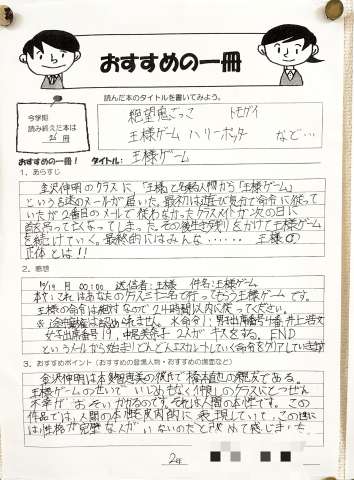 おすすめの一冊
今学期
読み終えた本は
冊
読んだ本のタイトルを書いてみよう。
絶望鬼ごっこ トモダチ
王様ゲーム ハリーポッター など…
おすすめの一冊! タイトル: 王様ゲーム
1. あらすじ
金沢伸明のクラスに「王様」と名乗る人間から「王様ゲーム」
という名のメールが届いた。最初は遊び気分で命令に従って
いたが2番目のメールで従わなかったクラスメイトが次の日に
首を吊って亡くなってしまった。その後生き残りをかけて王様ゲーム
を続けていく。最終的にはみんな…… 王様の
正体とは!!
2. 感想
月 00:00 送信者:王様 件名:王様ゲーム
本文:これはあなたのクラス三十二名で行ってもらう王様ゲームです。
王様の命令は絶対なので24時間以内に従ってください。
※途中棄権は認められません。※命令1:男子出席番号4番・井上浩文
女子出席番号19、中尾美奈子 2人がキスをする。END
というメールから始まりどんどんエスカレートしていく命令を
3. おすすめポイント(おすすめの登場人物・おすすめの場面など)
金沢伸明は本多智恵美の彼氏で橋本直也の親友である。
王様ゲームのせいで
不幸がおそいかかるのです。それは人間の本性です。この
作品では、人間の本性を皮肉的に表現していて、この世に
は性格が完璧な人がいないのだと改めて感じました。
2年